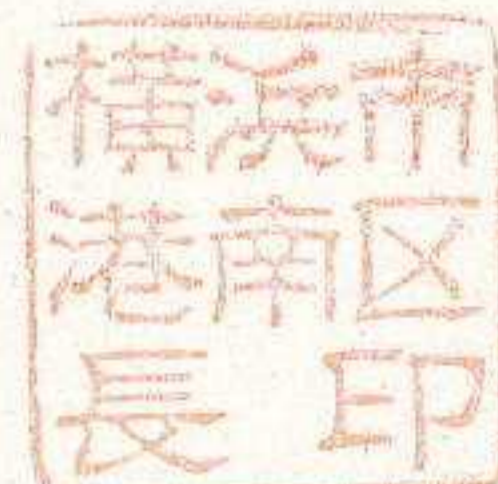 横浜市
港南区
長印